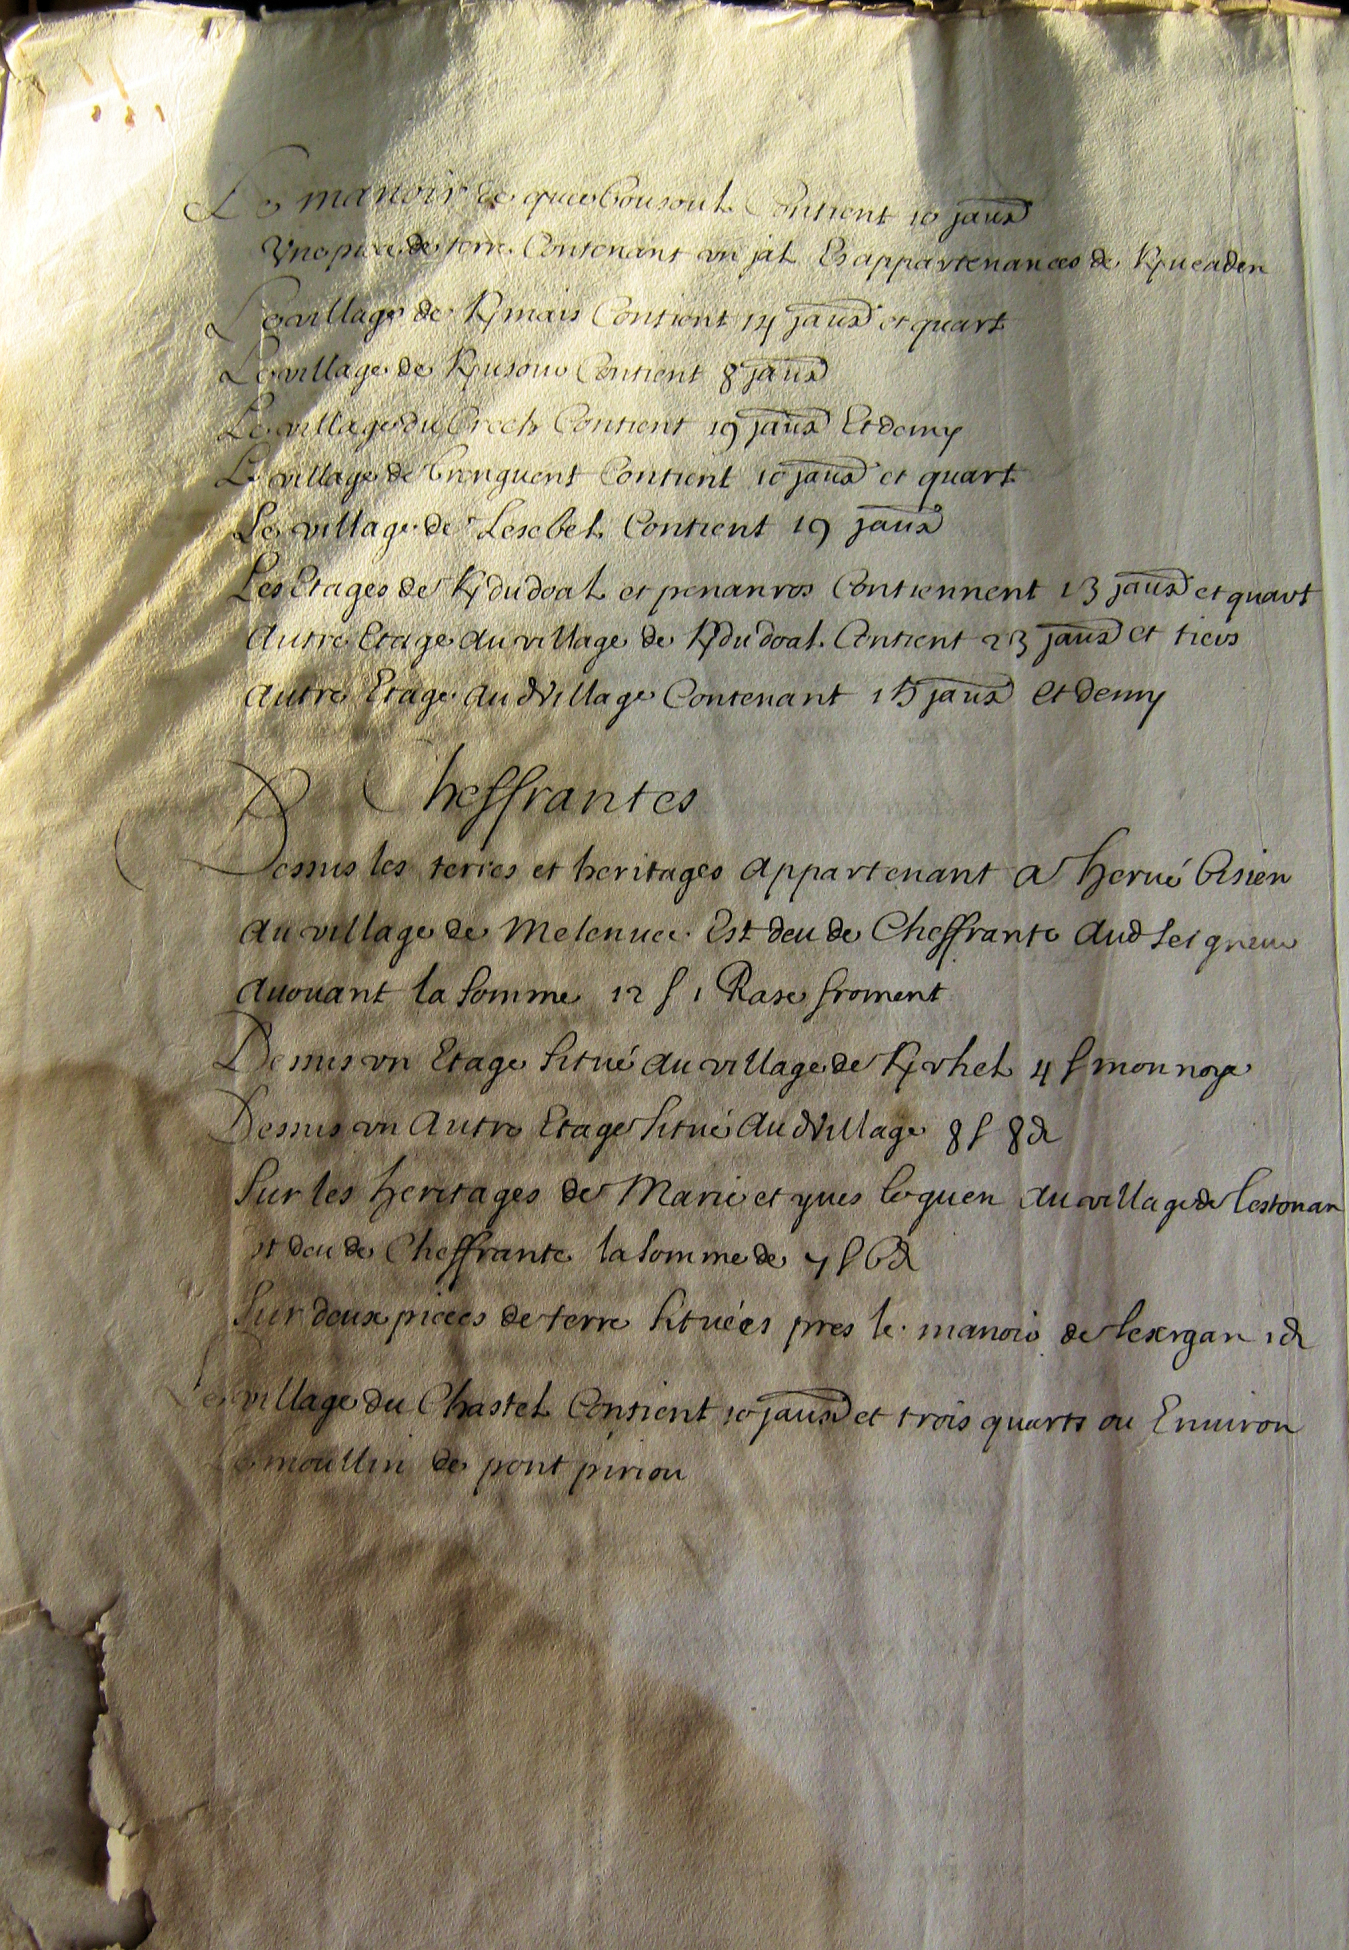 Le manoir de querbousoul Contient 10 jaux
Vne piece de terre Contenant vn jal Es appartenances de Kyueaden
Le village de Kymais Contient 14 jaux et quart
Le village de Kyusouo Contient 8 jaux
Le village du Crech Contient 19 jaux Et demy
Le village de Contient 10 jaux et quart
Le village de Lesebel Contient 19 jaux
Les Etages de Kydudoal et penanros Contiennent 13 jaux et quart
Autre Etage du village de Kydudoal Contient 23 jaux et tiers
autre Etage dud village Contenant 15 jaux et demy
Cheffrantes
Dessus les terres et heritages appartenant a herué
du village de Melenuec Est deu de Cheffrante aud seigneur
auouant la somme 12 s 1 Rase froment
Dessus vn Etage situé au village de Kyvhel 4 s monnoye
Dessus vn Autre Etage situé Aud village 8 s 8 d
Sur les heritages de Marie et yues leguen du village de lestonan
est deu de Cheffrante la somme de 7 s 6 d
Sur deux pieces de terre situées pres le manoir de lexrgan 1 d
Le village du Chastel Contient 10 jaux et trois quarts ou Enuiron
Le moullin de pont piriou